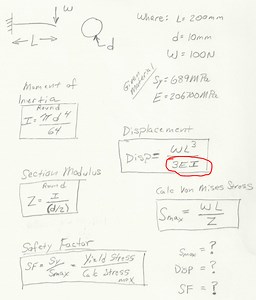 W
L
d
Where: L = 200mm
d = 10mm
W = 100N
Given Material
Sy = 689MPa
E = 206700MPa
Moment of Inertia
Round
I = π d⁴ / 64
Displacement
Disp = WL³ / 3EI
Section Modulus
Round
Z = I / (d/2)
Calc Von Mises Stress
Smax = WL / Z
Safety Factor
SF = Sy / Smax = Yield Stress / Calc Stress max
Smax = ?
DISP = ?
SF = ?